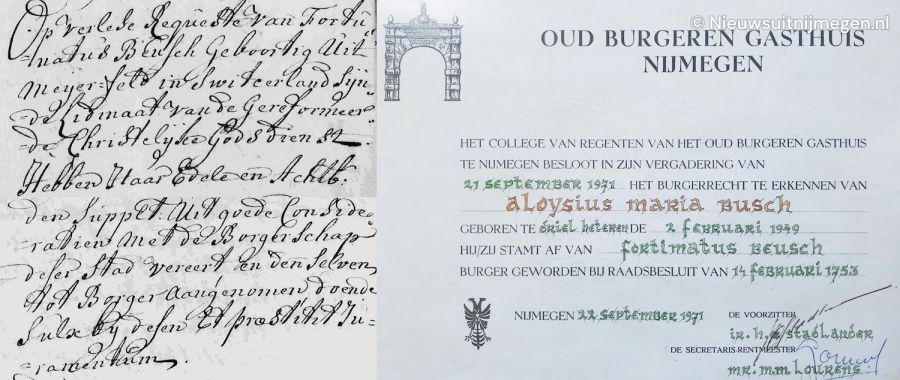 Op verlese Requeste van Fortu=
=natus Beusch Geboortig Uit
Meyer=feld in Switcerland Sijn=
=de Lidmaat van de Gereformeer=
=de Christelijke Gods dienst
Hebben Haar Edele en Achtb:
den Supplt: Uit goede Conside=
=ratien Met de Borgerschap
deser Stad vereert en den selven
tot Borger aangenomen doende
Sulx by desen Et præstitit Ju=
=ramentum.
© Nieuwsuitnijmegen.nl
OUD BURGEREN GASTHUIS
NIJMEGEN
HET COLLEGE VAN REGENTEN VAN HET OUD BURGEREN GASTHUIS
TE NIJMEGEN BESLOOT IN ZIJN VERGADERING VAN
21 september 1971 HET BURGERRECHT TE ERKENNEN VAN
aloysius maria busch
GEBOREN TE driel heteren DE 2 februari 1949
HIJ/ZIJ STAMT AF VAN fortimatus beusch
BURGER GEWORDEN BIJ RAADSBESLUIT VAN 14 februari 1753
NIJMEGEN 22 september 1971
DE VOORZITTER
ir. h. stadlander
DE SECRETARIS-RENTMEESTER
mr. m.m. lourens